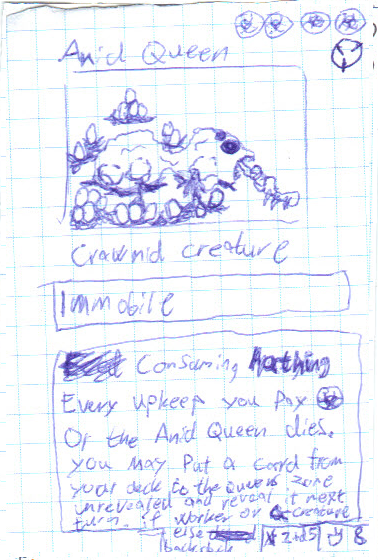 Anid Queen
Crawnid creature
Immobile
Consuming
Every upkeep you pay
Or the Anid Queen dies.
you may put a card from
your deck to the queens zone
unrevealed and reveal it next
turn. if worker or creature
else
8